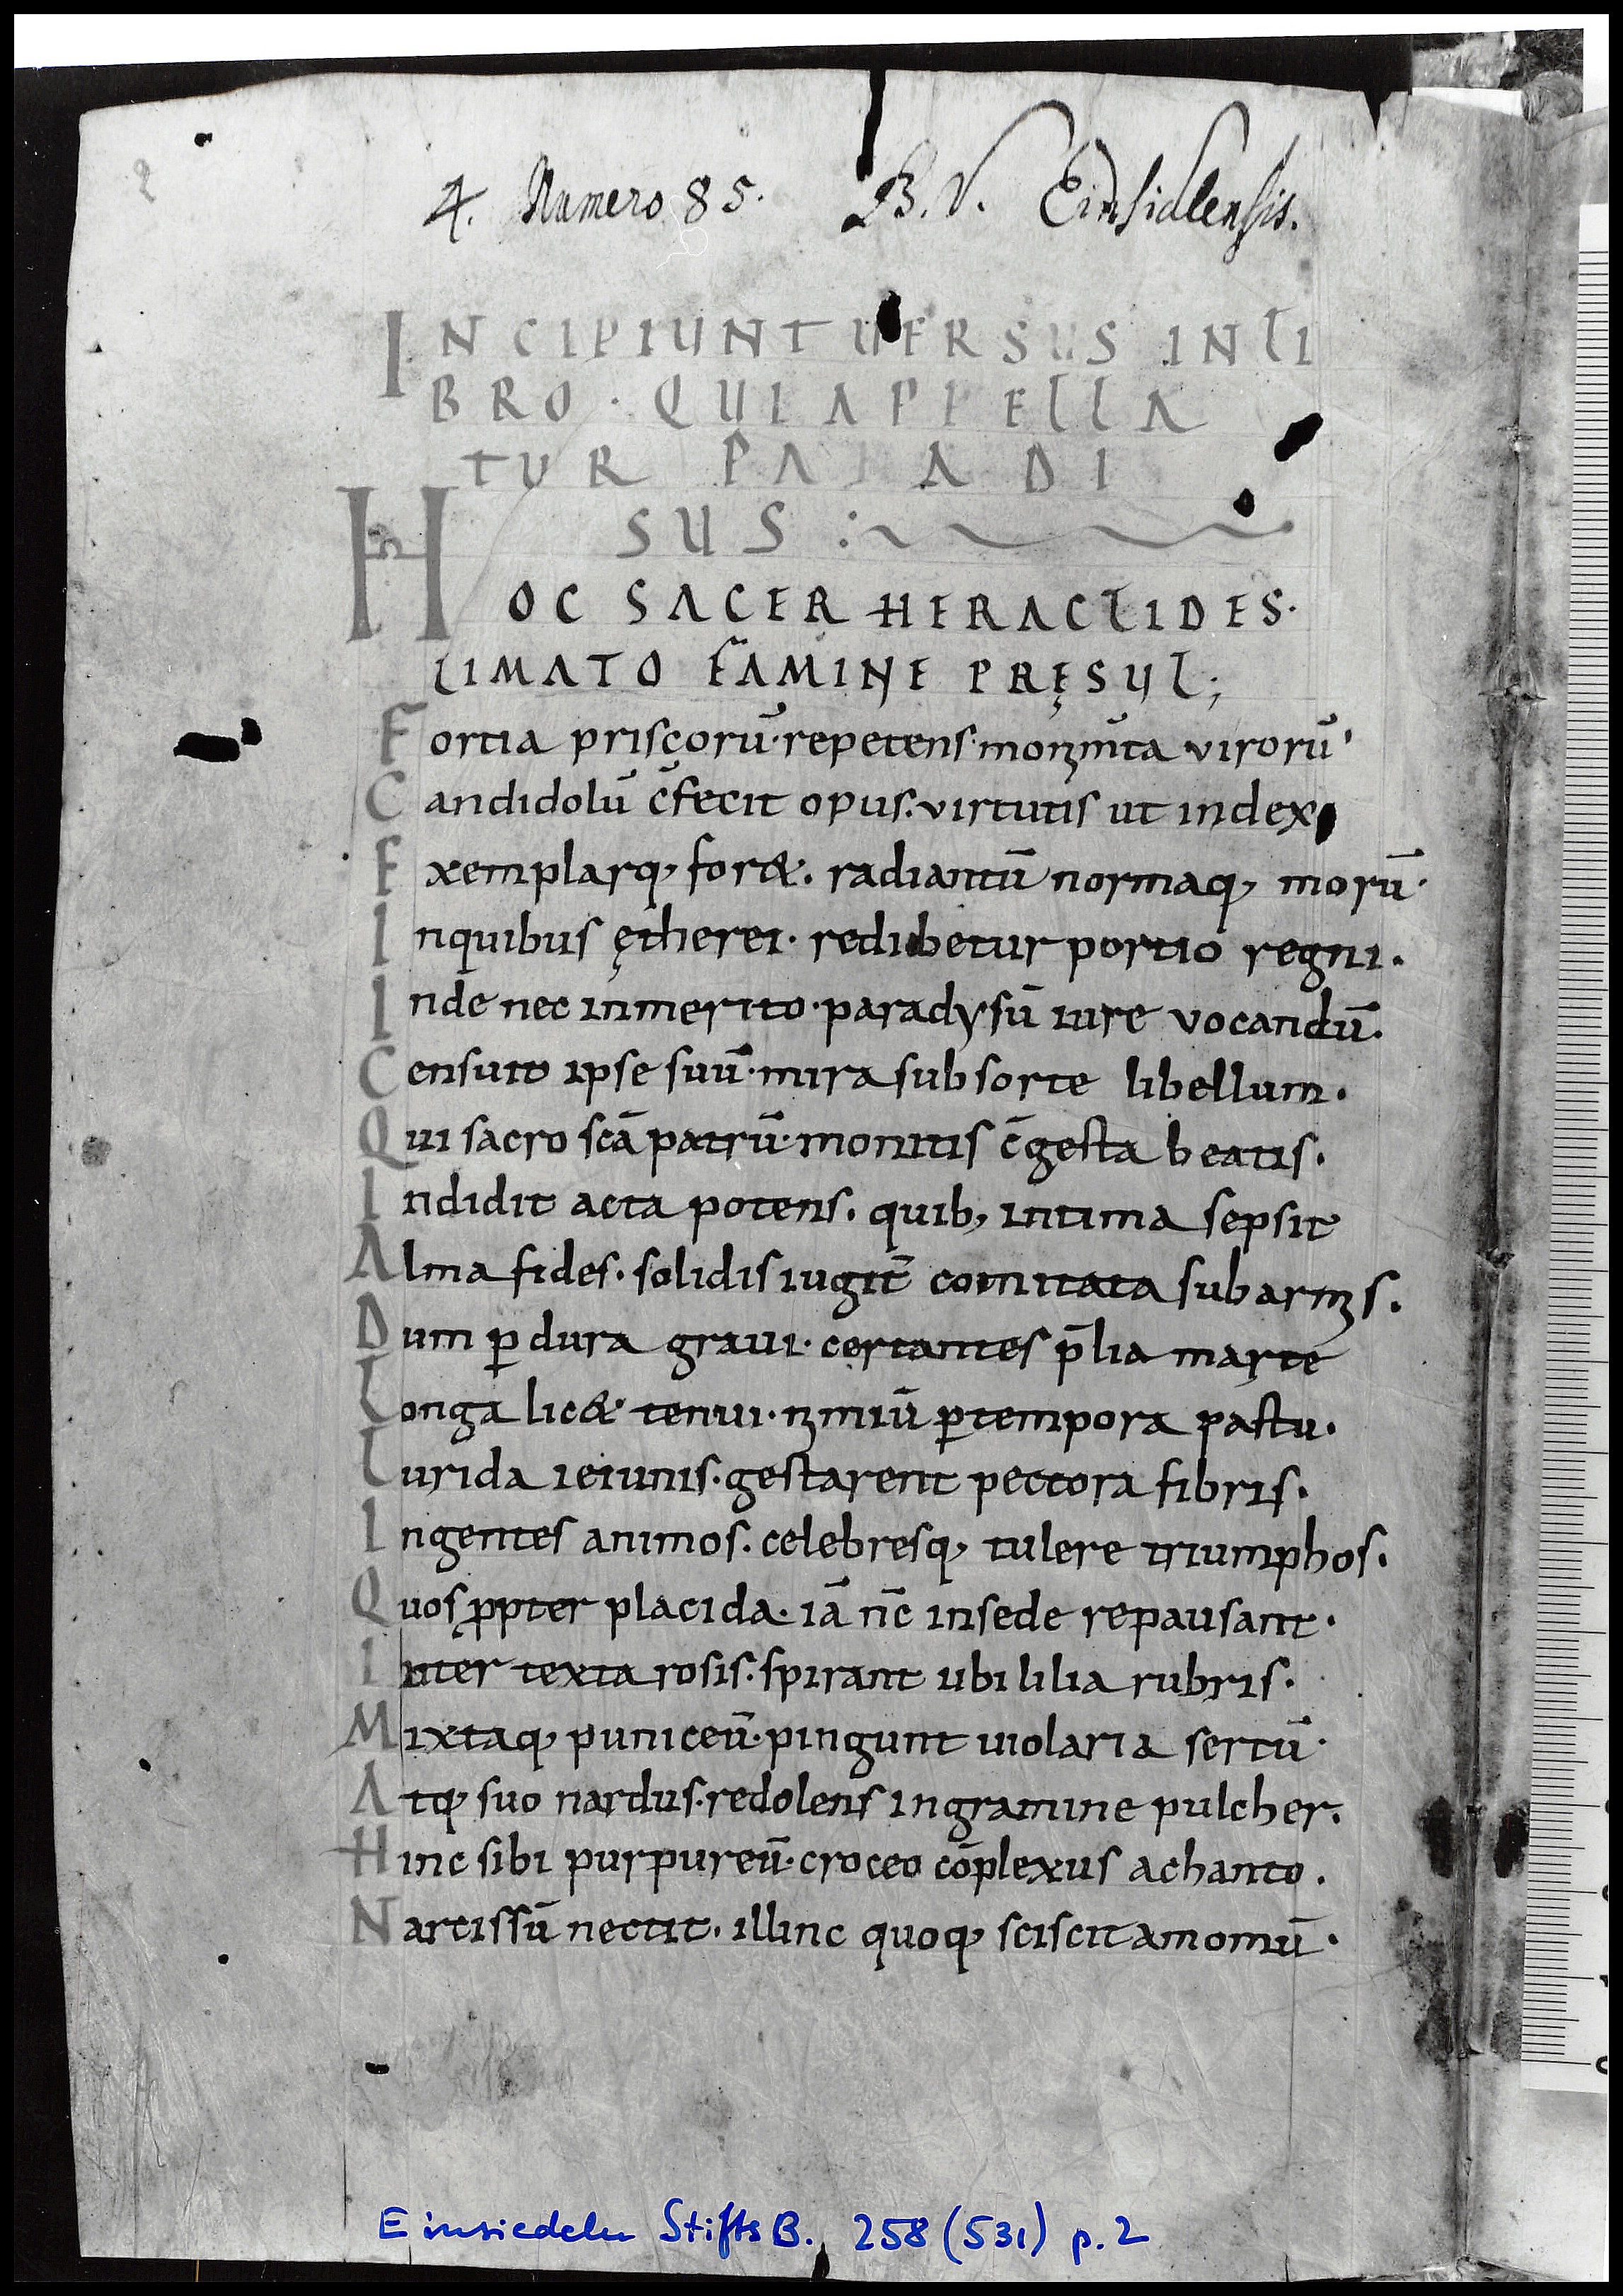 2
4. Numero 85. B. V. Einsidlensis.
INCIPIUNT UERSUS IN LI
BRO · QUI APPELLA
TUR PARADI
SUS :~
HOC SACER HERACLIDES·
LIMATO FAMINE PRĘSUL;
Fortia priscorū· repetens· monim̄ta virorū·
Candidolū c̄fecit opus. virtutis ut index
Exemplarq, foret. radiantū normaq, morū·
Inquibus ętherei· redibetur portio regni.
Inde nec inmerito· paradysū iure vocandū.
Censuit ipse suū· mira sub sorte libellum.
Qui sacro scā patrū· monitis c̄gesta beatis.
Indidit acta potens. quib, intima sepsit
Alma fides. solidis iugit̄ comitata sub armis.
Dum ꝑ dura graui· certantes p̄lia marte
Longa licet tenui· nimiū ꝑ tempora pastu.
Lurida ieiunis. gestarent pectora fibris.
Ingentes animos. celebresq, tulere triumphos.
Quos ꝓpter placida· iā nc̄ insede repausant·
Inter texta rosis. spirant ubi lilia rubris.
Mixtaq, puniceū· pingunt uiolaria sertū·
Atq, suo nardus. redolens ingramine pulcher.
Hinc sibi purpureū· croceo cōplexus achanto.
Narcissū nectit. illinc quoq, sciscit amomū·
Einsiedeln StiftsB. 258 (531) p. 2